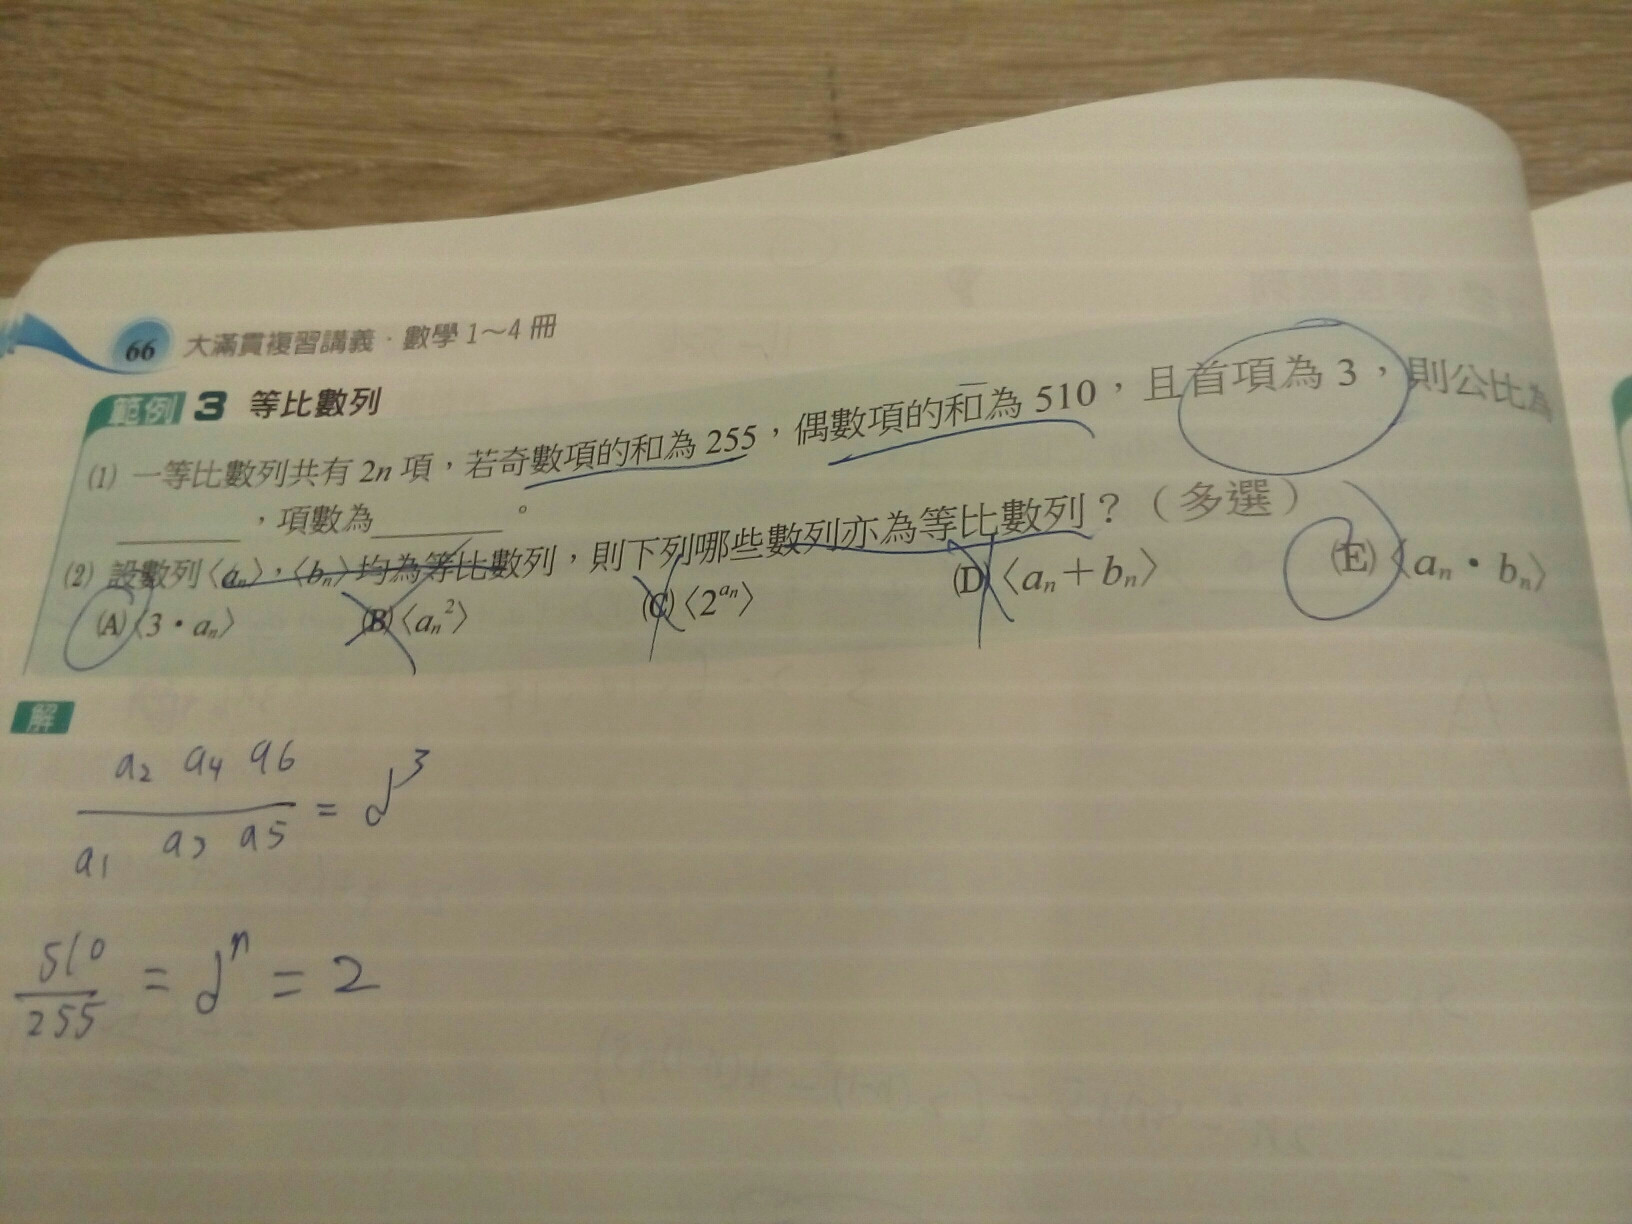 66 大滿貫複習講義．數學 1～4 冊
範例 3 等比數列
(1) 一等比數列共有 2n 項，若奇數項的和為 255，偶數項的和為 510，且首項為 3，則公比為
______，項數為______。
(2) 設數列〈aₙ〉，〈bₙ〉均為等比數列，則下列哪些數列亦為等比數列？（多選）
(A)〈3・aₙ〉 (B)〈aₙ²〉 (C)〈2^{aₙ}〉 (D)〈aₙ＋bₙ〉 (E)〈aₙ・bₙ〉
解
a₂ a₄ a6
a₁ a₃ a5 = d³
510
255 = dⁿ = 2